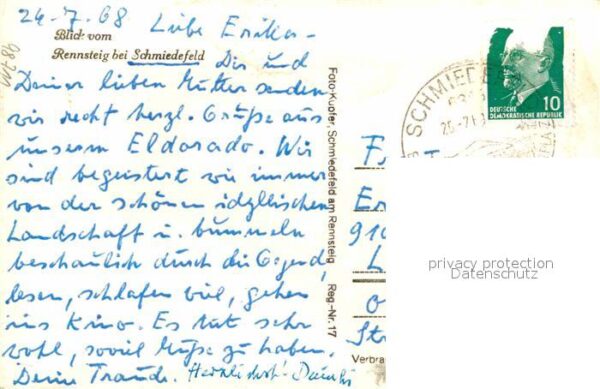 24-7.68 Liebe Erika -
Blick vom
Rennsteig bei Schmiedefeld
Dir und
Deiner lieben Mutter senden
wir recht herzl. Grüße aus
unserem Eldorado. Wir
sind begeistert wie immer
von der schönen idyllischen
Landschaft u. bummeln
beschaulich durch die Gegend,
lesen, schlafen viel, gehen
ins Kino. Es tut sehr
wohl, soviel Muße zu haben.
Deine Traude. Herzlichst
Foto-Kupfer, Schmiedefeld am Rennsteig Reg.-Nr. 17
SCHMIEDEF
DEUTSCHE
DEMOKRATISCHE REPUBLIK
10
Er
910
L
o
St
Verbra
privacy protection
Datenschutz